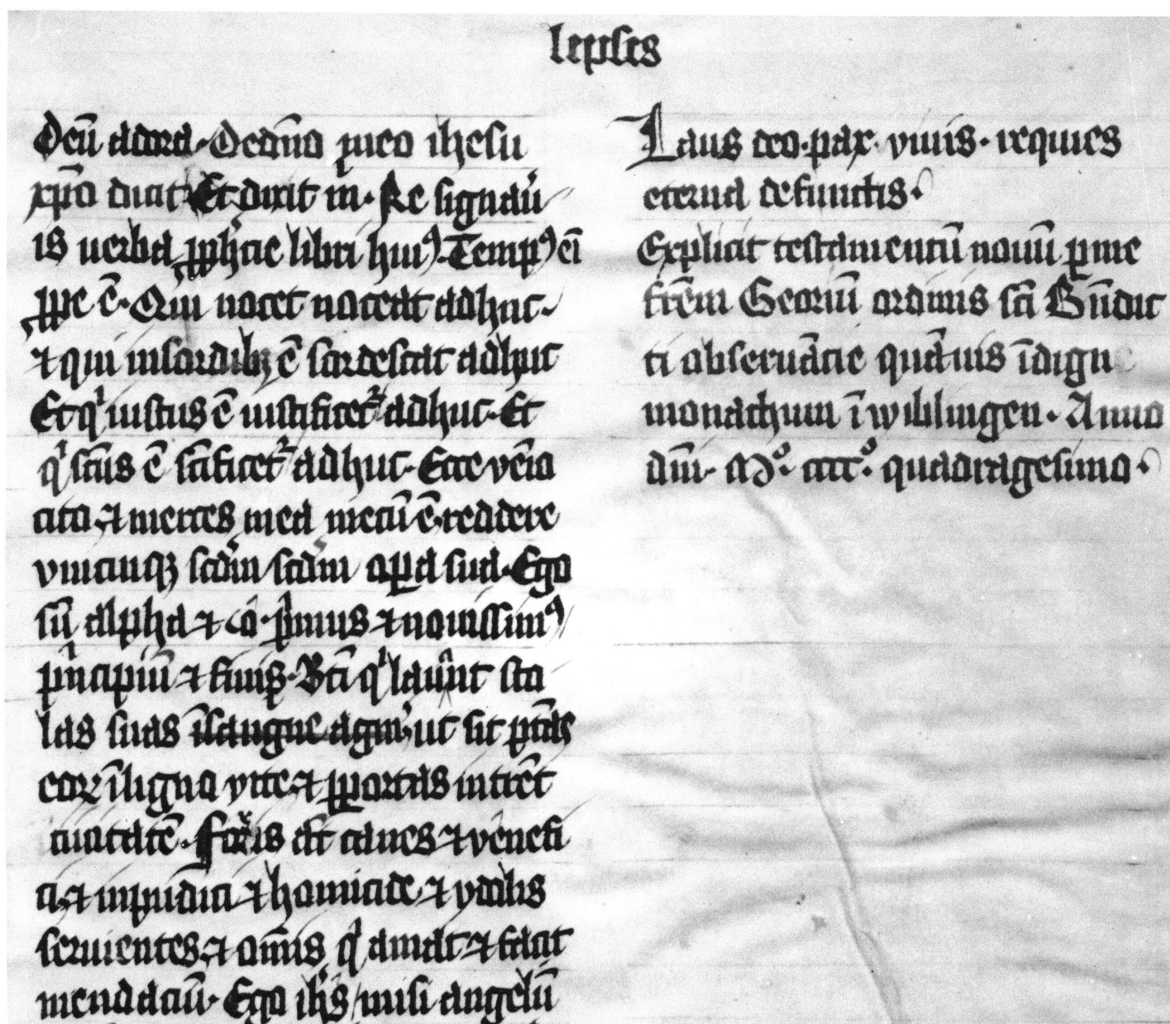 lepses
Deū adora. Oedn̄o meo ihesu
xp̄o dicit Et dixit m̄. Ne signau̾
is uerba ꝓph̾cie libri hui⁹. Temp⁹ ei̅
ꝓpe ē. Qui nocet noceat adhuc
⁊ qui insordibꝫ ē sordescat adhuc
Et qͥ iustus ē iustificet᷑ adhuc. Et
qͥ sc̄us ē sc̄ificet᷑ adhuc. Ecce vēio
cito ⁊ merces mea mecū ē reddere
vnicuiqꝫ scd̄m scd̄m oꝑa sua. Ego
sū alpha ⁊ ō. pͥmus ⁊ nouissim⁹
pͥncipiū ⁊ finis. Bt̄i qͥ lauūt sto
las suas īsangne agni ut sit pt̄as
eoꝝ īligno vite ⁊ ꝑportas intrēt
ciuitatē. Foris st̄ canes ⁊ venefi
ci ⁊ inpudici ⁊ homicide ⁊ ydolis
seruientes ⁊ om̄is qͥ amat ⁊ facit
mendaciū. Ego ih̄s misi angelū
Laus deo. pax. viuis. requies
eterna defunctis.
Explicit testamentū nouū ꝑme
frēm Georiū ordinis sc̄i Bn̄dic
ti obseruācie quāuis īdign
monachum ī wiblingen. Anno
dn̄i. Mº. cccº. quadragesimo.